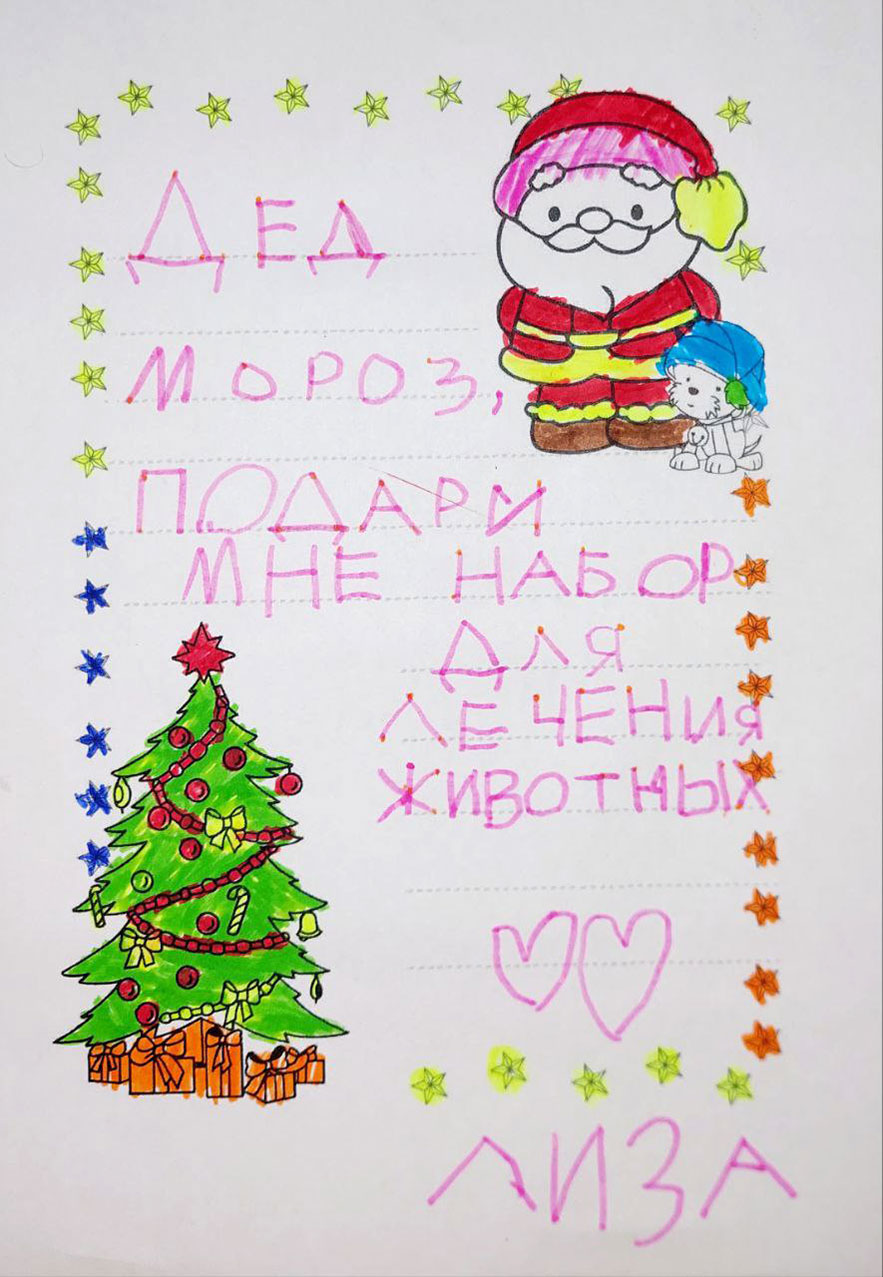 ДЕД
МОРОЗ,
ПОДАРИ
МНЕ НАБОР
ДЛЯ
ЛЕЧЕНИЯ
ЖИВОТНЫХ
ЛИЗА